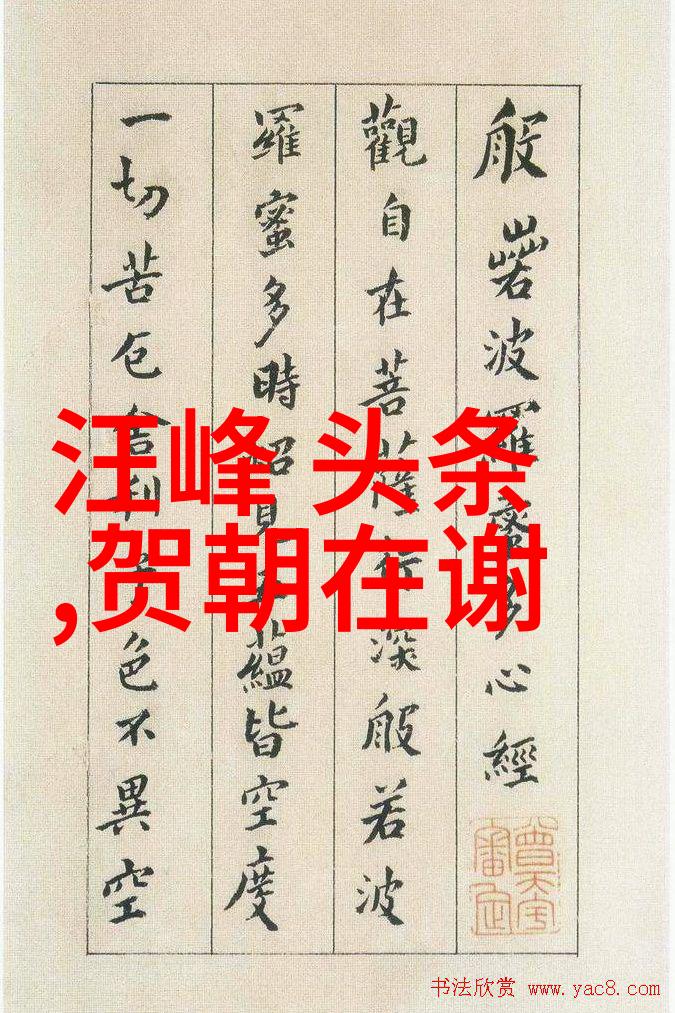 般若波羅蜜多心經
觀自在菩薩行深般若波
羅蜜多時照見五蘊皆空度
一切苦厄舍利子色不異空
汪峰 头条
,贺朝在谢
书法欣赏 www.yac8.com